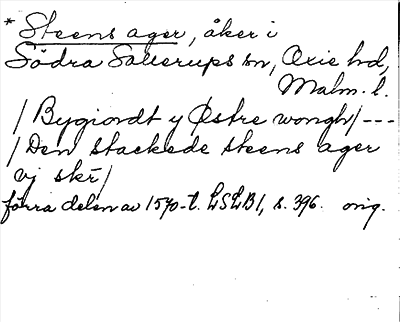 * Steens ager, åker i
Södra Sallerups sn, Oxie hd,
Malm. l.
/ Bygiordt y Østre wongh/ ---
/ Den stackede steens ager
vj skr/
förra delen av 1570-t. LSLB1, s. 396. orig.